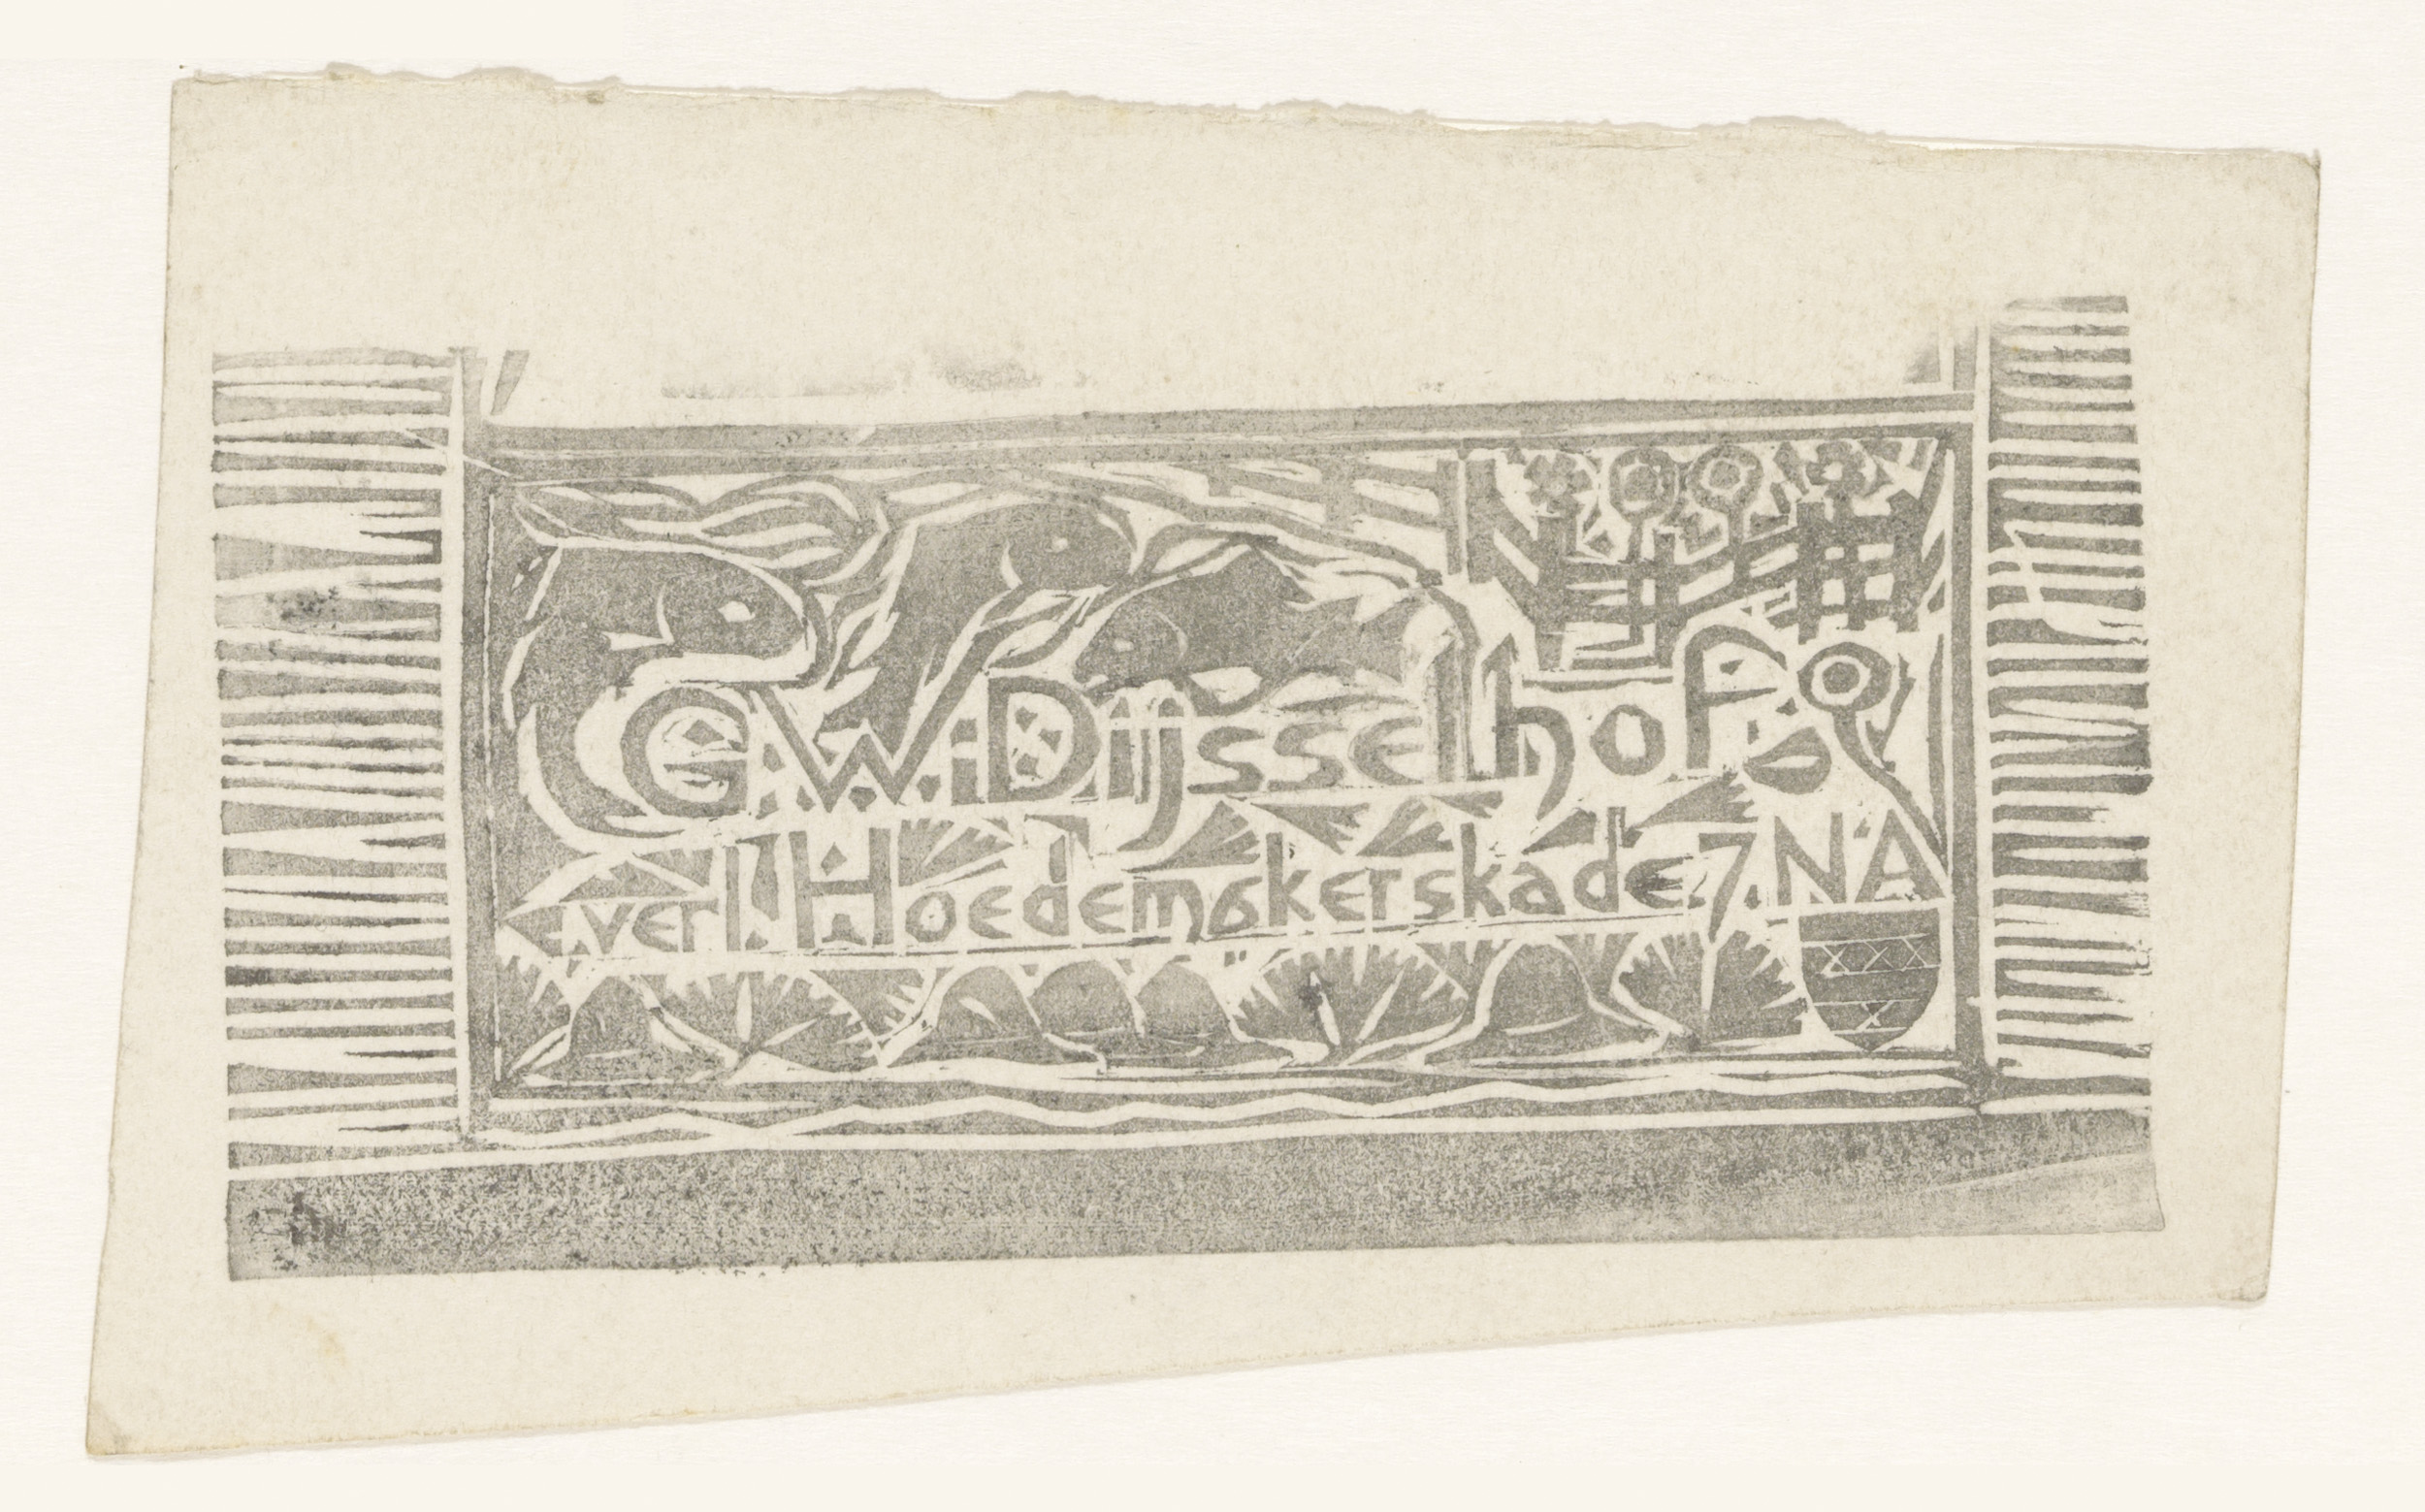 G.W. Dijsselhof
everh. Hoedemakerskade 7. NA